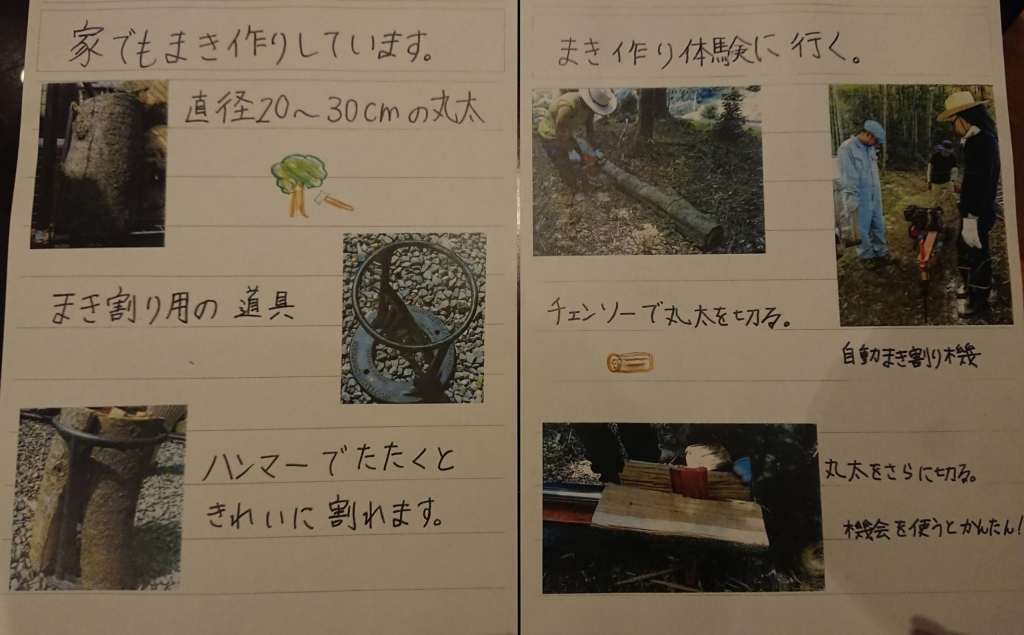 家でもまき作りしています。
直径20〜30cmの丸太
まき割り用の 道具
ハンマーでたたくと
きれいに割れます。
まき作り体験に行く。
チェンソーで丸太を切る。
自動まき割り機
丸太をさらに切る。
機会を使うとかんたん!